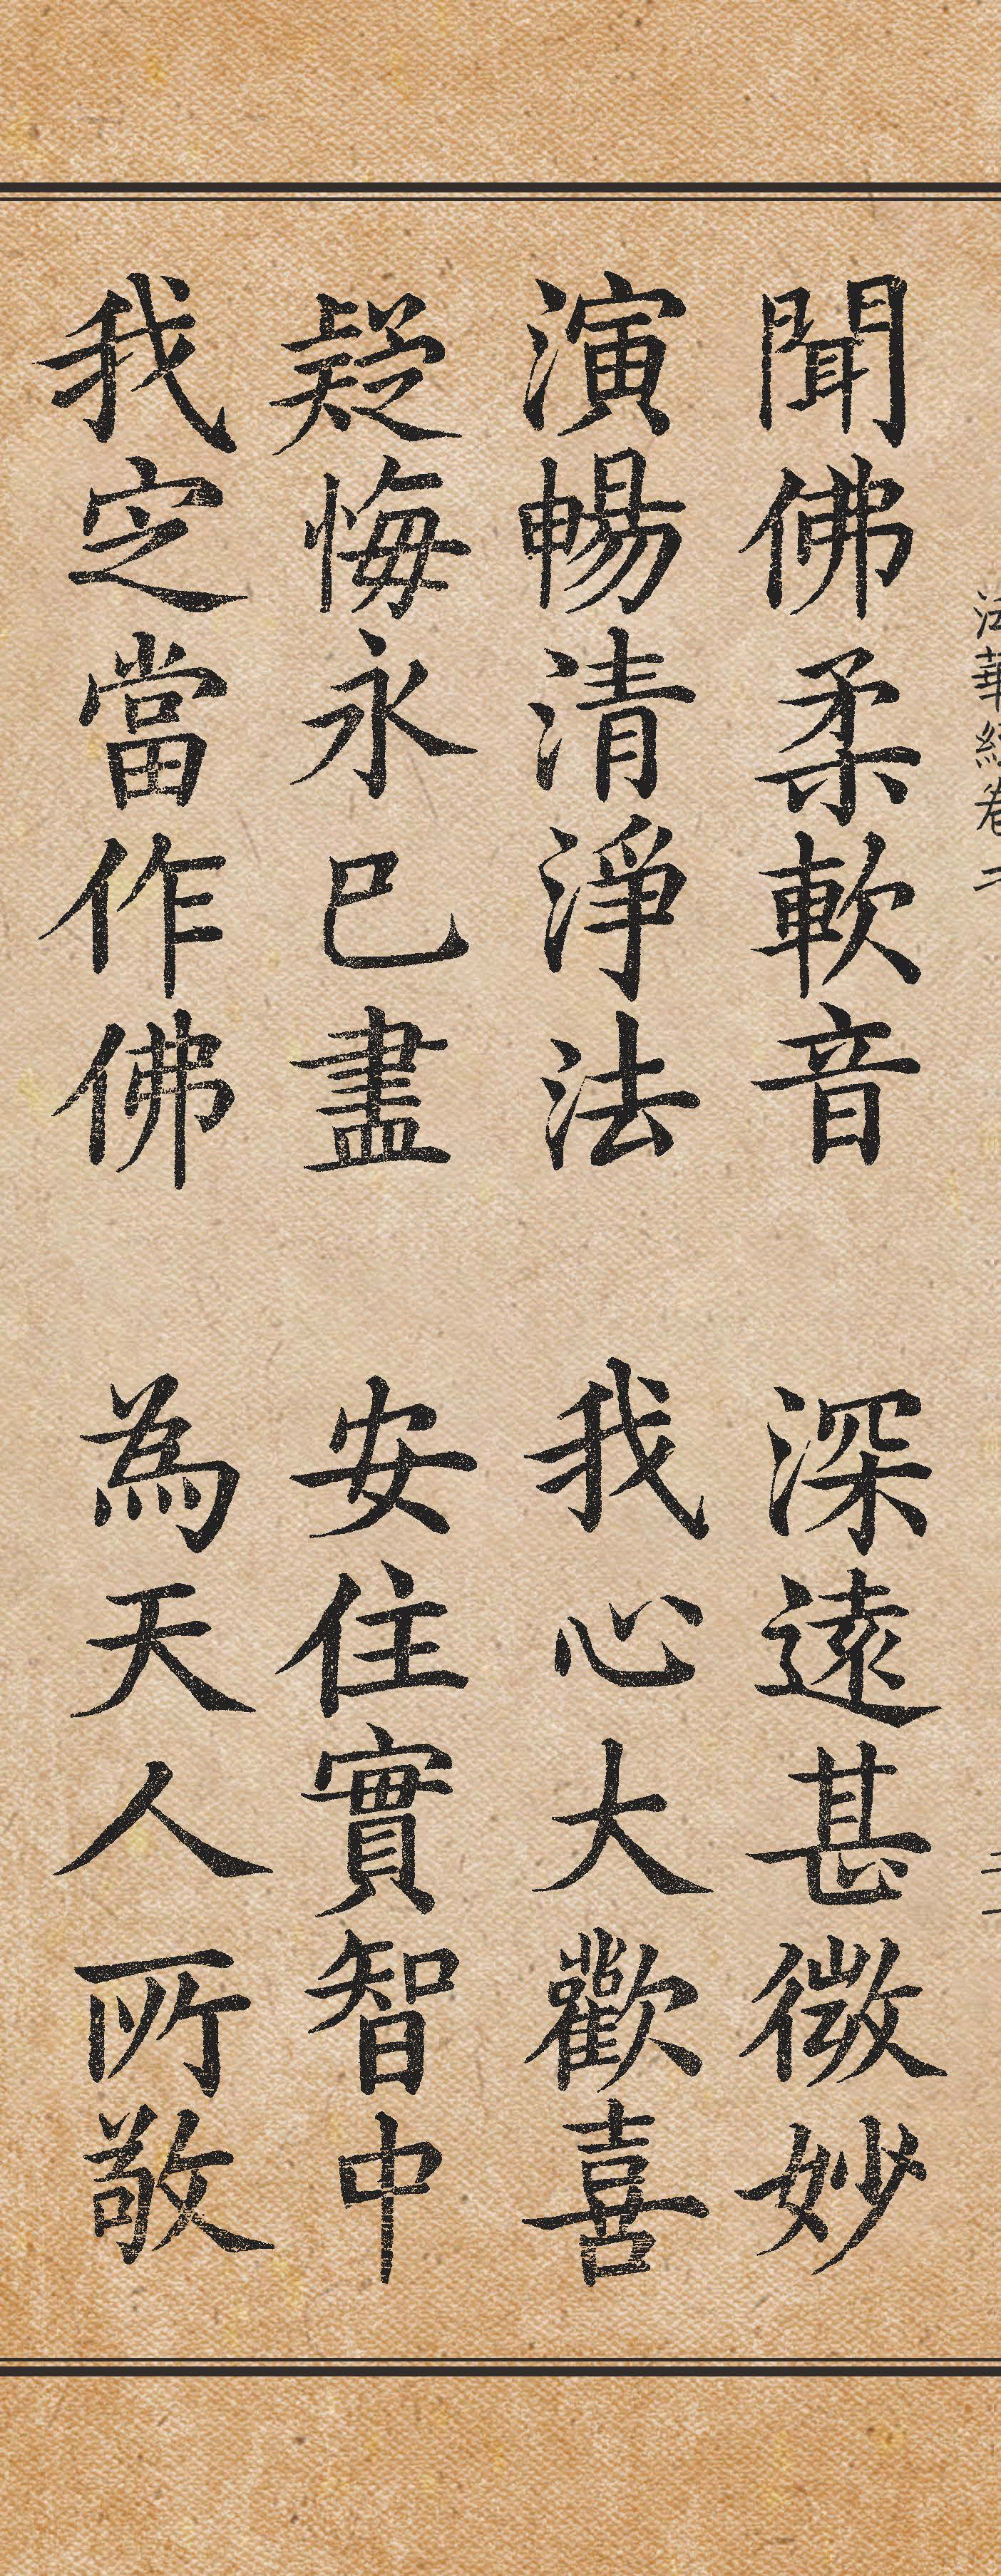 法華經卷二
二
聞佛柔軟音 深遠甚微妙
演暢清淨法 我心大歡喜
疑悔永已盡 安住實智中
我定當作佛 為天人所敬